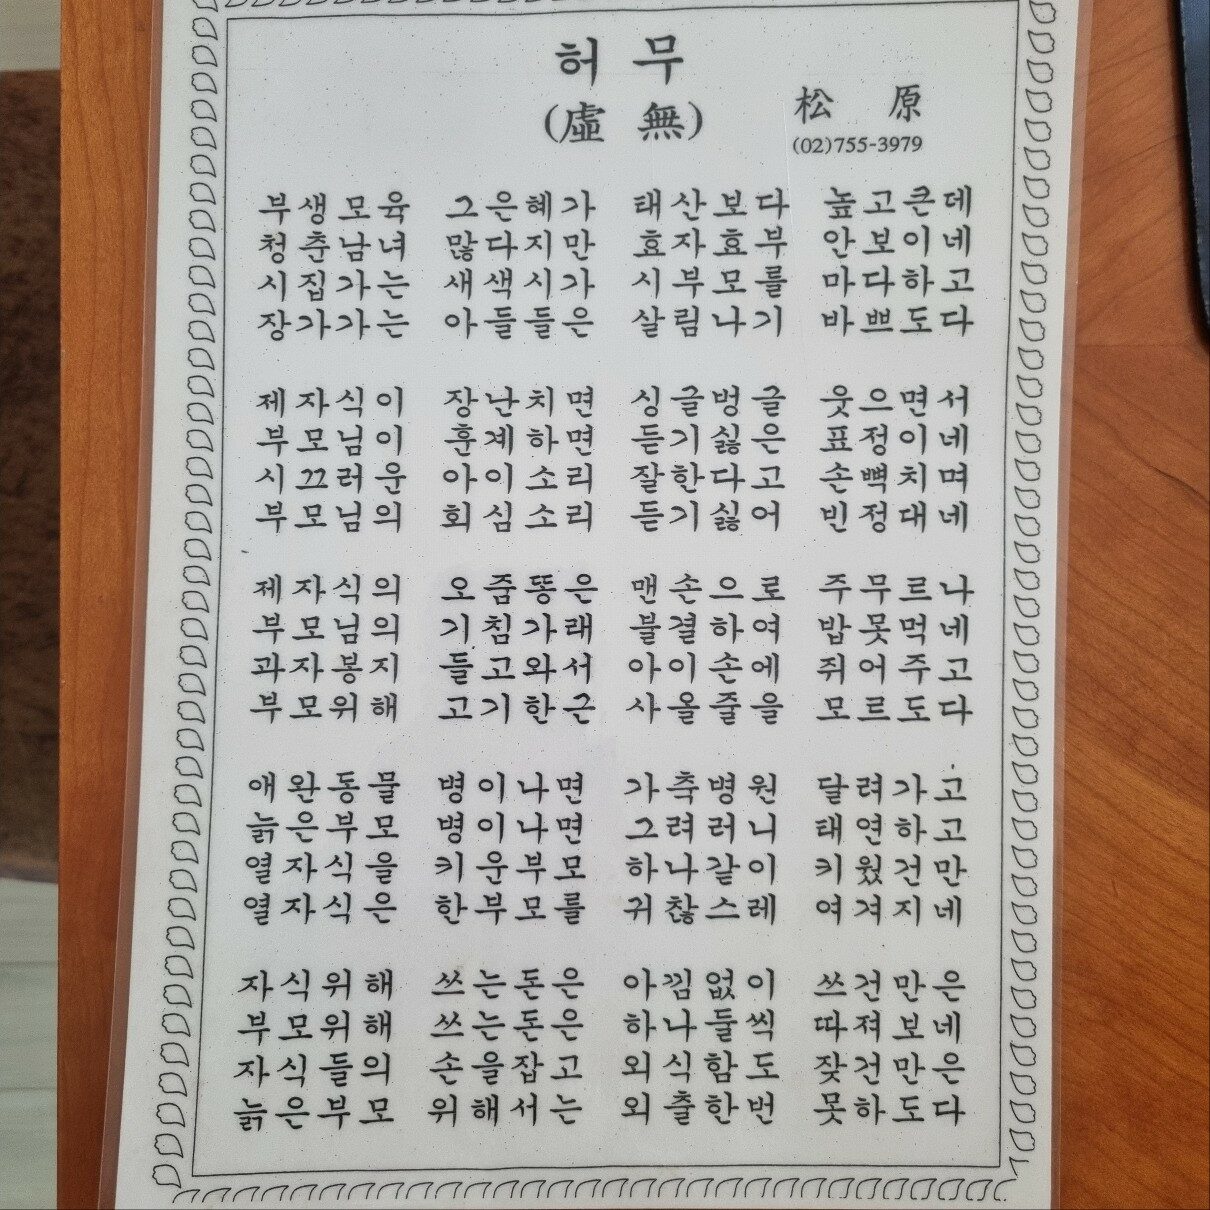 허무
(虛無)
松原
(02)755-3979
부생모육 그은혜가 태산보다 높고큰데
청춘남녀 많다지만 효자효부 안보이네
시집가는 새색시가 시부모를 마다하고
장가가는 아들들은 살림나기 바쁘도다
제자식이 장난치면 싱글벙글 웃으면서
부모님이 훈계하면 듣기싫은 표정이네
시끄러운 아이소리 잘한다고 손뼉치며
부모님의 회심소리 듣기싫어 빈정대네
제자식의 오줌똥은 맨손으로 주무르나
부모님의 기침가래 불결하여 밥못먹네
과자봉지 들고와서 아이손에 쥐어주고
부모위해 고기한근 사올줄을 모르도다
애완동물 병이나면 가축병원 달려가고
늙은부모 병이나면 그려러니 태연하고
열자식을 키운부모 하나같이 키웠건만
열자식은 한부모를 귀찮스레 여겨지네
자식위해 쓰는돈은 아낌없이 쓰건만은
부모위해 쓰는돈은 하나둘씩 따져보네
자식들의 손을잡고 외식함도 잦건만은
늙은부모 위해서는 외출한번 못하도다